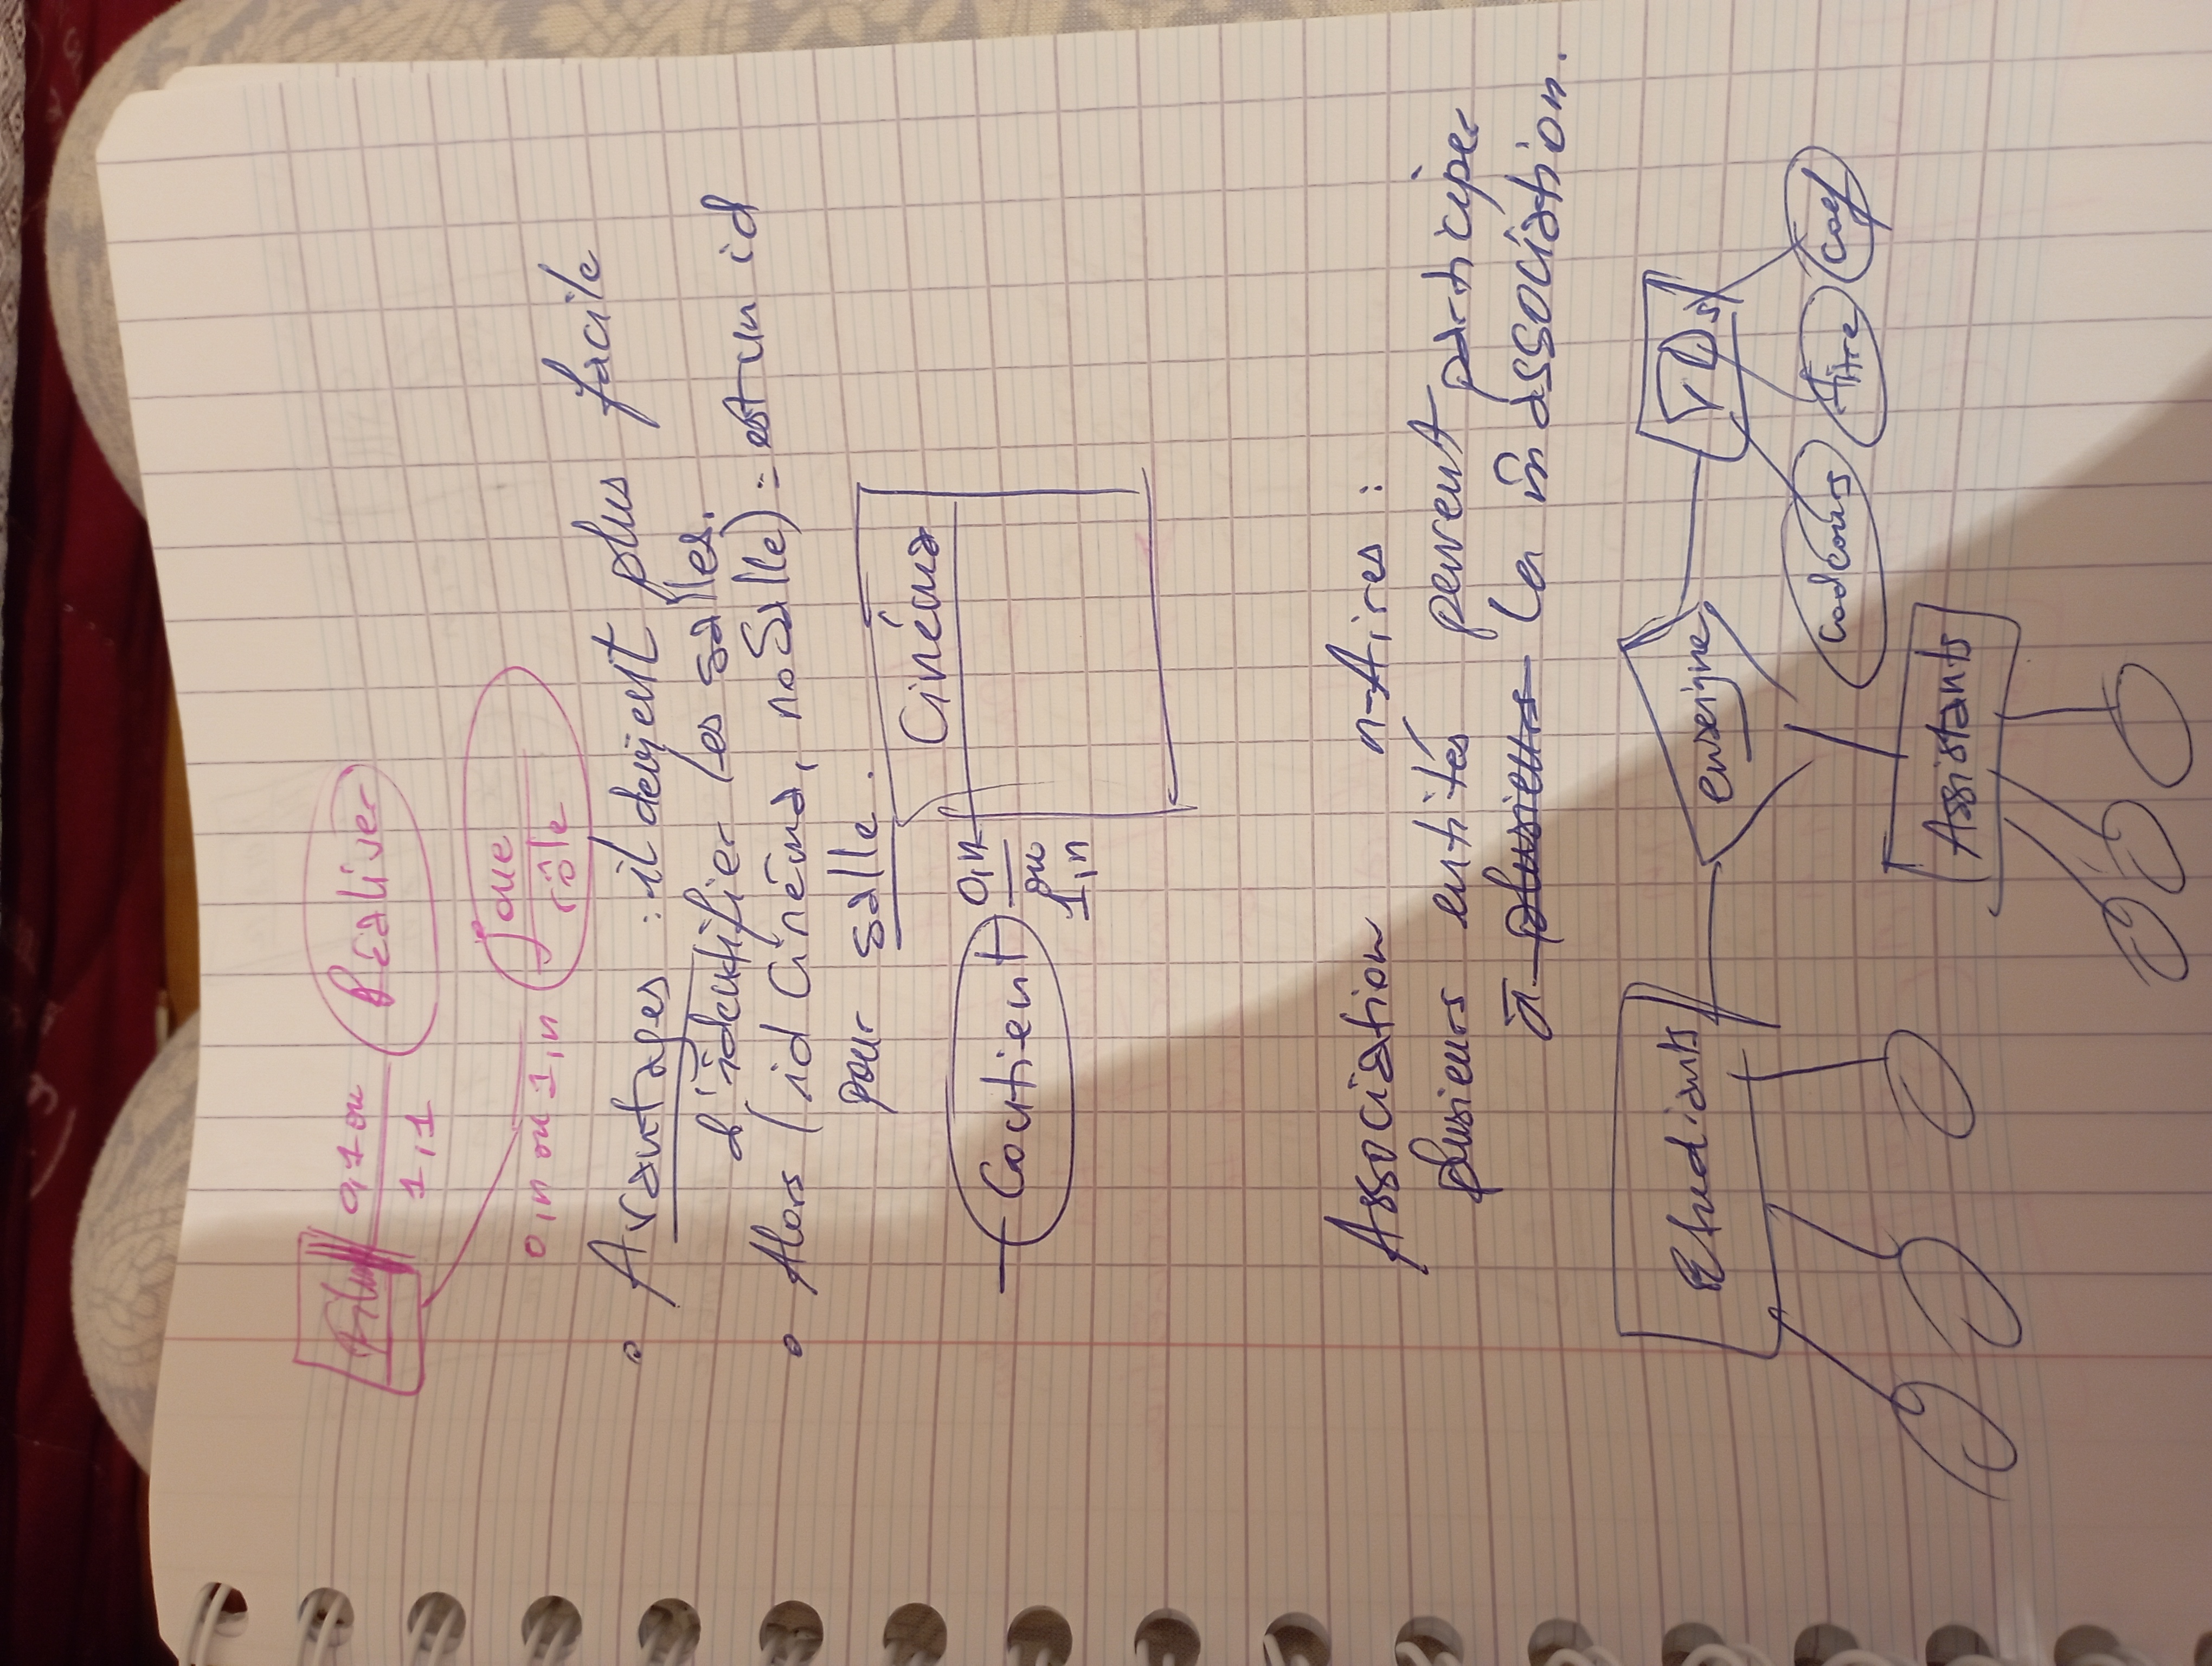 Film
0,1 ou
1,1
Réaliser
0,n ou 1,n
joue
rôle
Avantages : il devient plus facile
d'identifier les salles.
Alors (id Cinéma, noSalle) = est un id
pour salle.
Cinéma
Contient
0,n
ou
1,n
Association n-Aires :
plusieurs entités peuvent participer
à plusieurs la m̂ association.
Etudiants
enseigne
TDs
codcours
titre
coef
Assistants